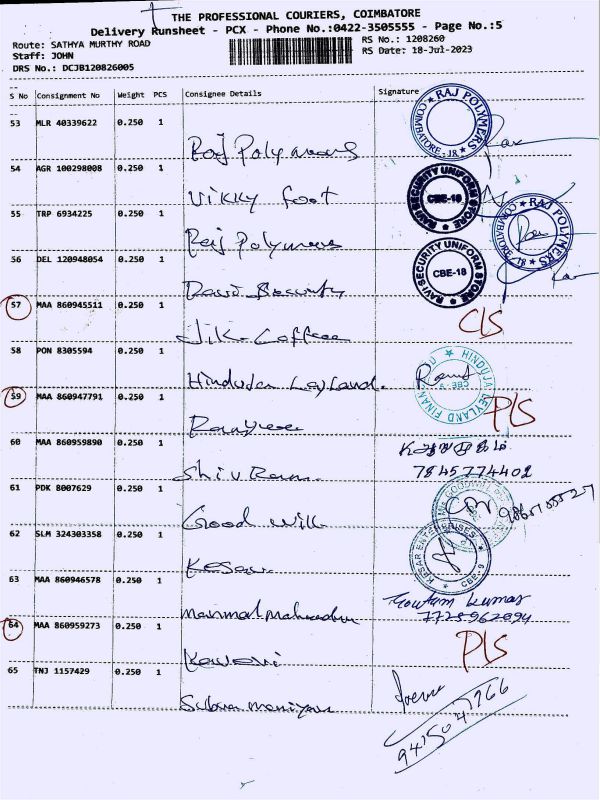 THE PROFESSIONAL COURIERS, COIMBATORE
Delivery Runsheet - PCX - Phone No.:0422-3505555 - Page No.:5
Route: SATHYA MURTHY ROAD RS No.: 1208260
Staff: JOHN RS Date: 18-Jul-2023
DRS No.: DCJB120826005
S No Consignment No Weight PCS Consignee Details Signature
53 MLR 40339622 0.250 1
Raj Polymers
RAJ POLYMERS COIMBATORE-18
54 AGR 100298008 0.250 1
Vikky foot
RAVI SECURITY UNIFORM STORE CBE-18
55 TRP 6934225 0.250 1
Raj Polymers
RAJ POLYMERS COIMBATORE-18
56 DEL 120948054 0.250 1
Security
RAVI SECURITY UNIFORM STORE CBE-18
57 MAA 860945511 0.250 1
Coffee
CLS
58 PON 8305594 0.250 1
Hinduja Leyland
HINDUJA LEYLAND FINAN
59 MAA 860947791 0.250 1
PLS
60 MAA 860959890 0.250 1
Shiv Ram
7845774402
61 PDK 8007629 0.250 1
Good Will
GOODWILL
62 SLM 324303358 0.250 1
Kesar
KESAR ENTERPRISES CBE-9
63 MAA 860946578 0.250 1
Goutam Kumar
64 MAA 860959273 0.250 1
PLS
65 TNJ 1157429 0.250 1